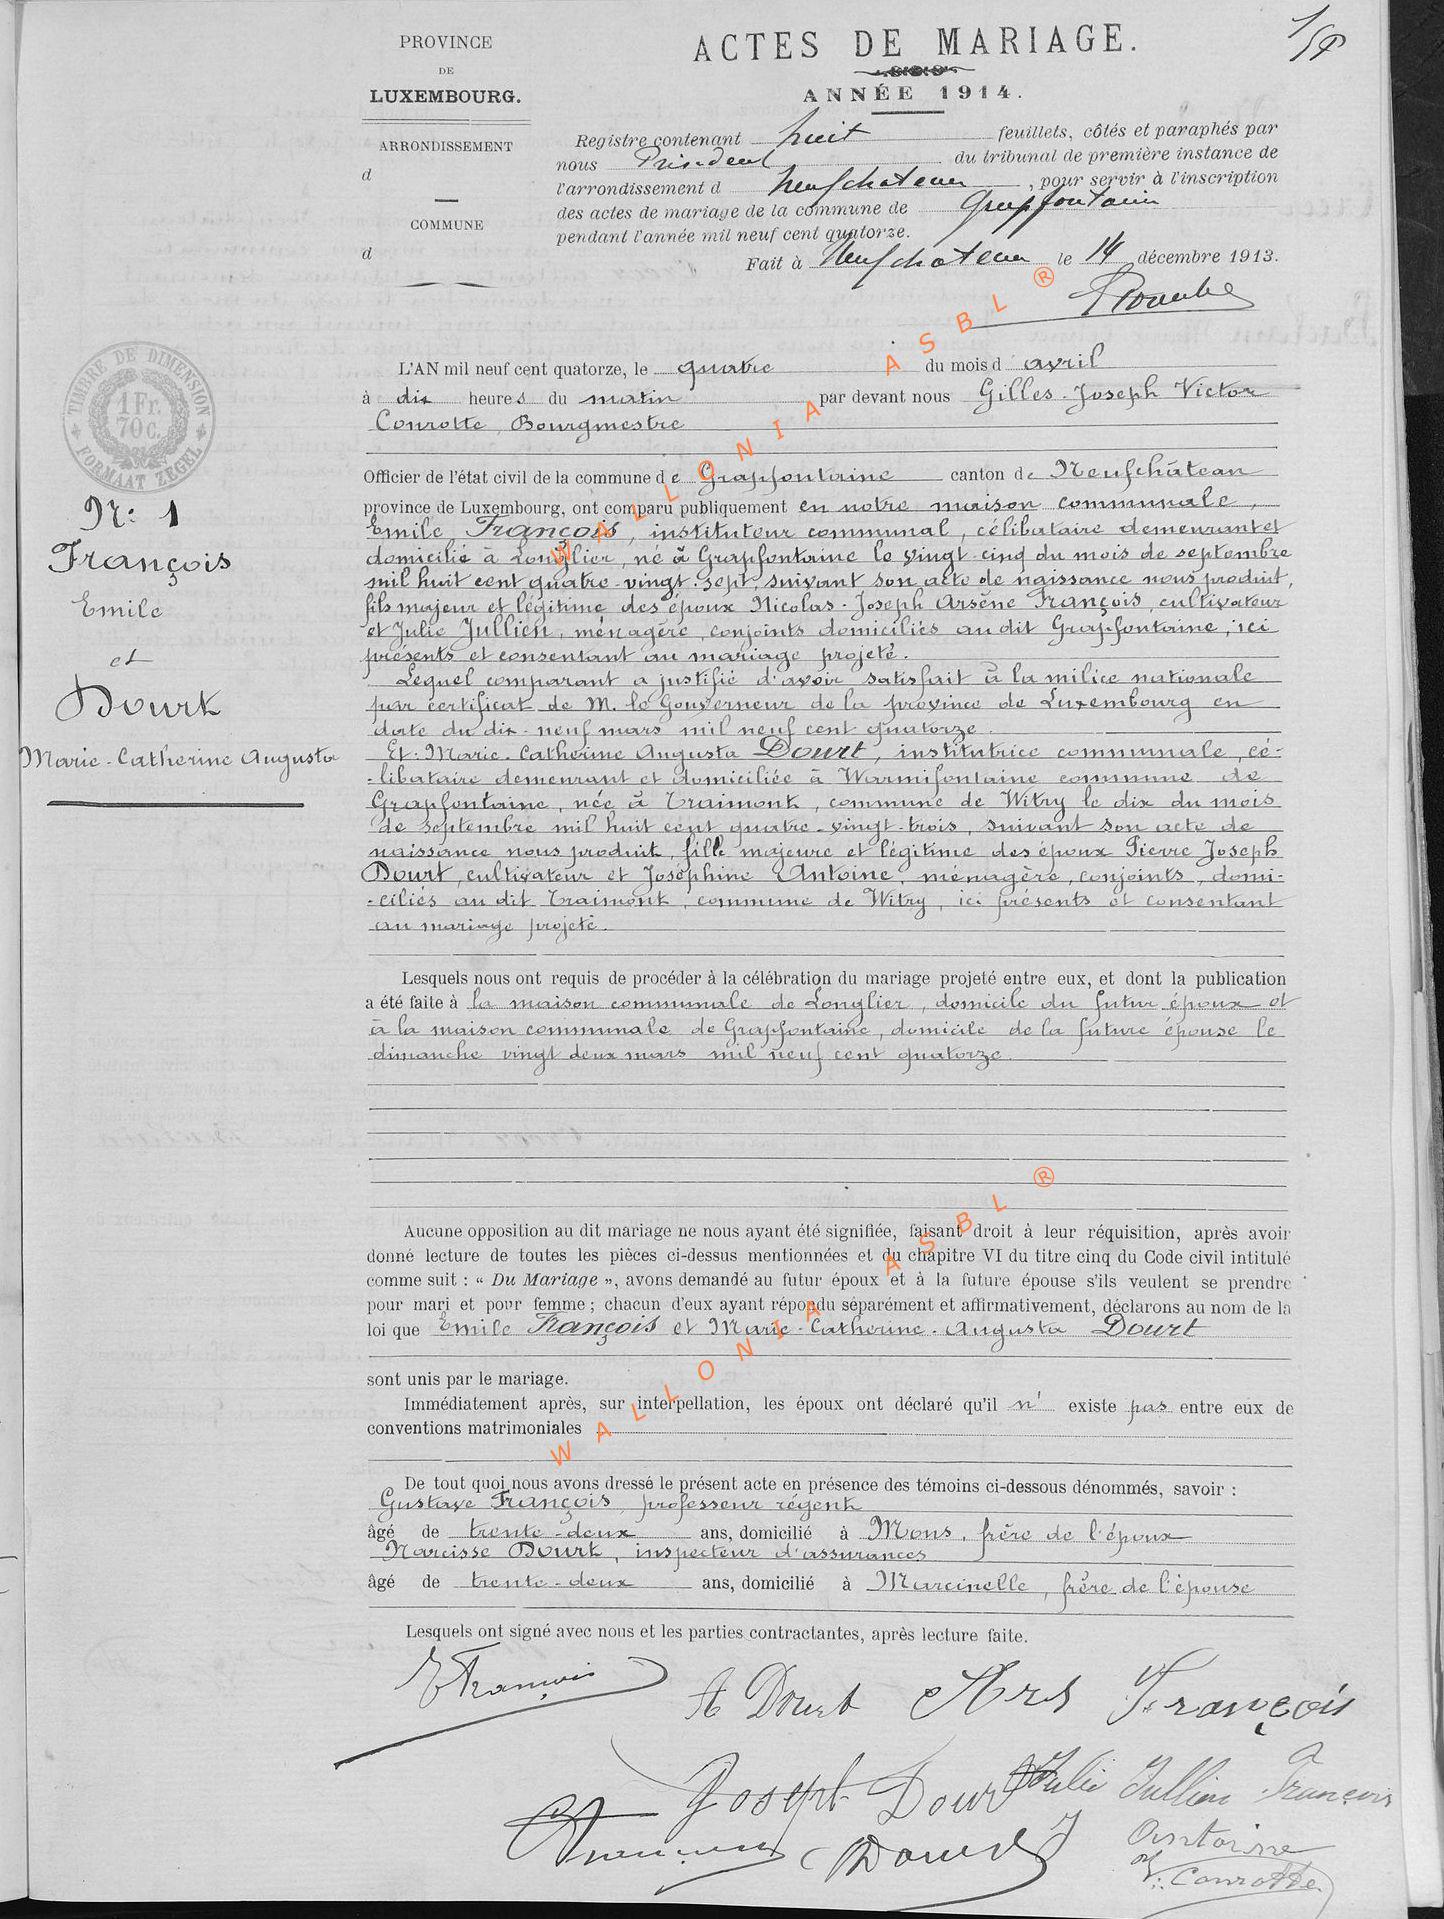 PROVINCE
DE
LUXEMBOURG.
ARRONDISSEMENT
d
COMMUNE
d
ACTES DE MARIAGE.
ANNÉE 1914.
Registre contenant huit feuillets, côtés et paraphés par
nous Président du tribunal de première instance de
l'arrondissement d Neufchateau, pour servir à l'inscription
des actes de mariage de la commune de Grapfontaine
pendant l'année mil neuf cent quatorze.
Fait à Neufchateau le 14 décembre 1913.
TIMBRE DE DIMENSION
1 Fr.
70 C.
FORMAAT ZEGEL
L'AN mil neuf cent quatorze, le quatre du mois d'avril
à dix heures du matin par devant nous Gilles-Joseph Victor
Conrotte, Bourgmestre
Officier de l'état civil de la commune de Grapfontaine canton de Neufchâteau
province de Luxembourg, ont comparu publiquement en notre maison communale,
Emile François, instituteur communal, célibataire demeurant et
domicilié à Longlier, né à Grapfontaine le vingt-cinq du mois de septembre
mil huit cent quatre-vingt-sept, suivant son acte de naissance nous produit,
fils majeur et légitime des époux Nicolas-Joseph Arsène François, cultivateur
et Julie Jullien, ménagère, conjoints domiciliés au dit Grapfontaine, ici
présents et consentant au mariage projeté.
Lequel comparant a justifié d'avoir satisfait à la milice nationale
par certificat de M. le Gouverneur de la province de Luxembourg en
date du dix-neuf mars mil neuf cent quatorze.
Et: Marie-Catherine Augusta Dourt, institutrice communale, cé-
-libataire demeurant et domiciliée à Warmifontaine commune de
Grapfontaine, née à Traimont, commune de Witry le dix du mois
de septembre mil huit cent quatre-vingt-trois, suivant son acte de
naissance nous produit, fille majeure et légitime des époux Pierre Joseph
Dourt, cultivateur et Joséphine Antoine, ménagère, conjoints, domi-
-ciliés au dit Traimont, commune de Witry, ici présents et consentant
au mariage projeté.
N° 1
François
Emile
et
Dourt
Marie-Catherine Augusta
Lesquels nous ont requis de procéder à la célébration du mariage projeté entre eux, et dont la publication
a été faite à la maison communale de Longlier, domicile du futur époux et
à la maison communale de Grapfontaine, domicile de la future épouse le
dimanche vingt deux mars mil neuf cent quatorze.
Aucune opposition au dit mariage ne nous ayant été signifiée, faisant droit à leur réquisition, après avoir
donné lecture de toutes les pièces ci-dessus mentionnées et du chapitre VI du titre cinq du Code civil intitulé
comme suit : « Du Mariage », avons demandé au futur époux et à la future épouse s'ils veulent se prendre
pour mari et pour femme ; chacun d'eux ayant répondu séparément et affirmativement, déclarons au nom de la
loi que Emile François et Marie-Catherine-Augusta Dourt
sont unis par le mariage.
Immédiatement après, sur interpellation, les époux ont déclaré qu'il n' existe pas entre eux de
conventions matrimoniales
De tout quoi nous avons dressé le présent acte en présence des témoins ci-dessous dénommés, savoir :
Gustave François, professeur régent
âgé de trente-deux ans, domicilié à Mons, frère de l'époux
Narcisse Dourt, inspecteur d'assurances
âgé de trente-deux ans, domicilié à Marcinelle, frère de l'épouse
Lesquels ont signé avec nous et les parties contractantes, après lecture faite.
E François
A Dourt Ars François
Joseph Dourt Julie Jullien François
Dourt J Antoine
V. Conrotte
WALLONIA ASBL ®
WALLONIA ASBL ®